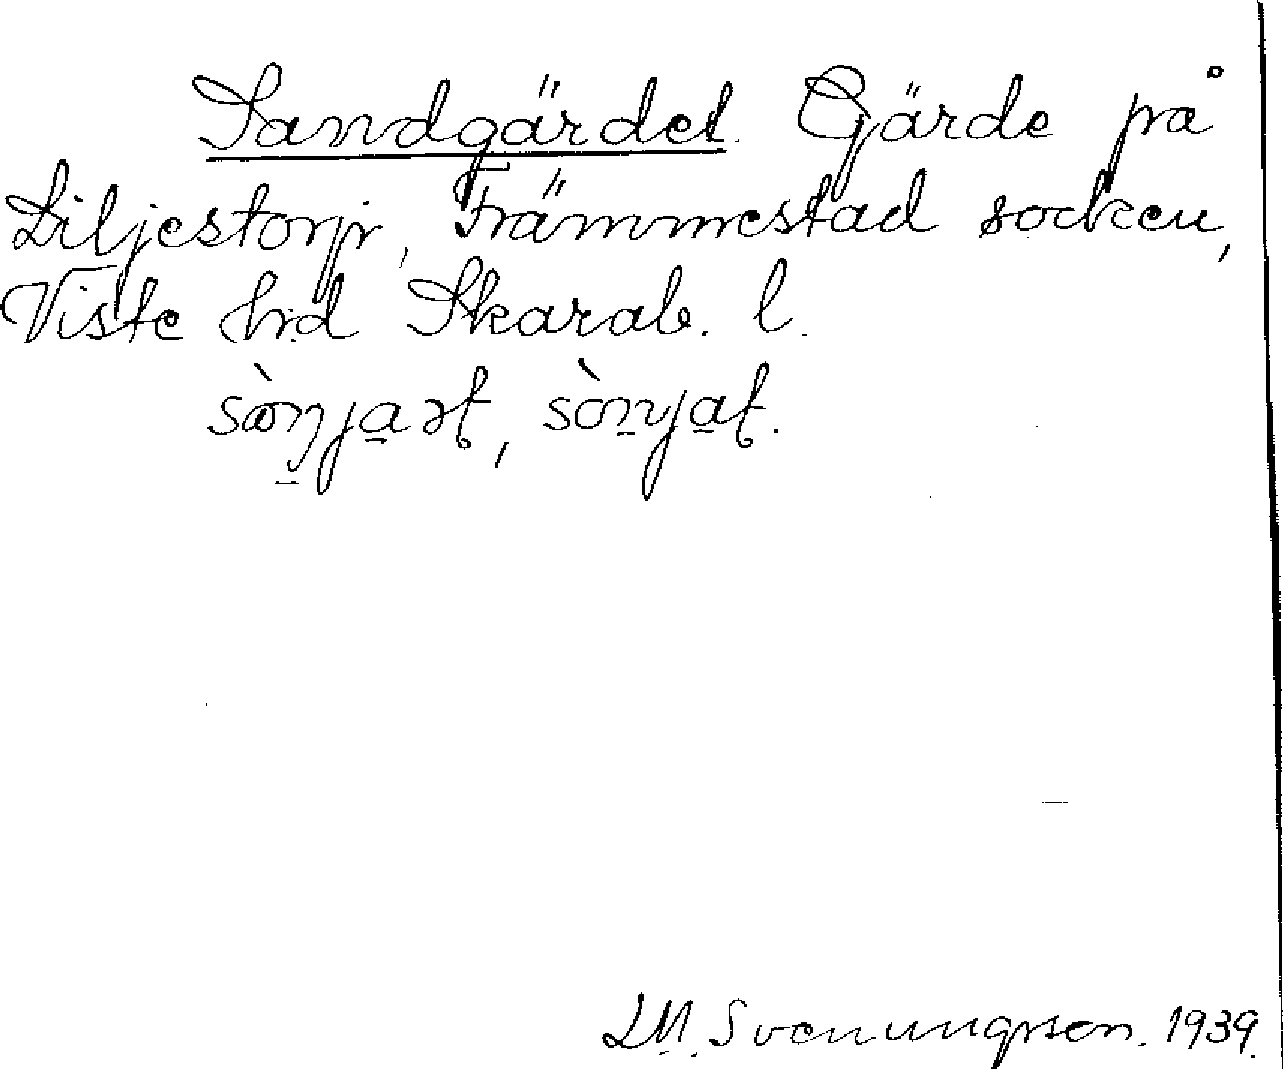 Sandgärdet. Gärde på
Liljestorp, Främmestad socken,
Viste hrd Skarab. l.
sòŋja̱ət, sòṉja̱t.
L.M. Svenungsson. 1939.